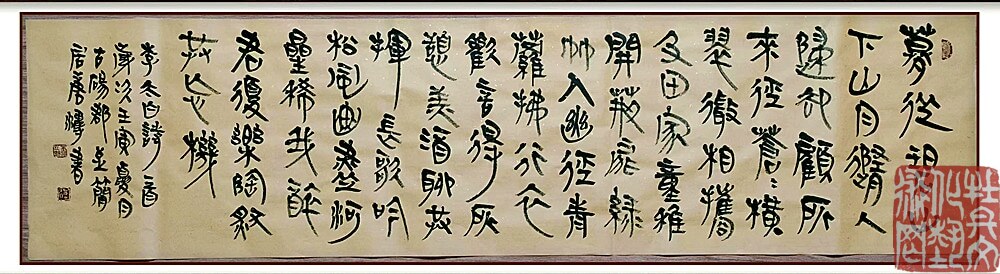 暮從碧山
下山月隨人
歸却顧所
來徑蒼〻橫
翠微相攜
及田家童稚
開荊扉綠
竹入幽徑青
蘿拂行衣
歡言得所
憩美酒聊共
揮長歌吟
松風曲盡河
星稀我醉
君復樂陶然
共忘機
李太白詩首
歲次壬寅夏月
古陽郡至簡
居唐書